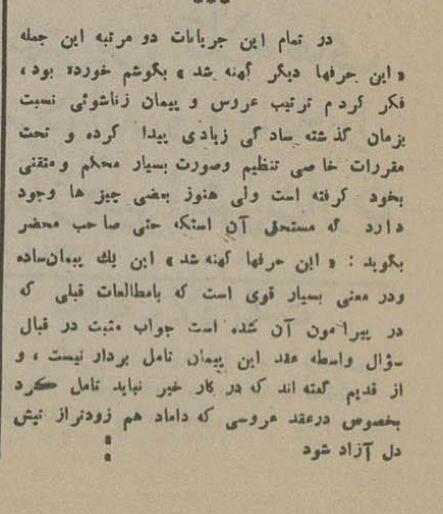 ***
در تمام این جریانات دو مرتبه این جمله
« این حرفها دیگر کهنه شد » بگوشم خورده بود ،
فکر کردم ترتیب عروس و پیمان زناشوئی نسبت
بزمان گذشته سادگی زیادی پیدا کرده و تحت
مقررات خاصی تنظیم وصورت بسیار محکم ومتقنی
بخود گرفته است ولی هنوز بعضی چیز ها وجود
دارد که مستحق آن استکه حتی صاحب محضر
بگوید : « این حرفها کهنه شد » این یك پیمان ساده
ودر معنی بسیار قوی است که بامطالعات قبلی که
در پیرامون آن شده است جواب مثبت در قبال
سؤال واسطه عقد این پیمان تامل بردار نیست ، و
از قدیم گفته اند که در کار خیر نباید تامل کرد
بخصوص درعقد عروسی که داماد هم زودتراز تپش
دل آزاد شود